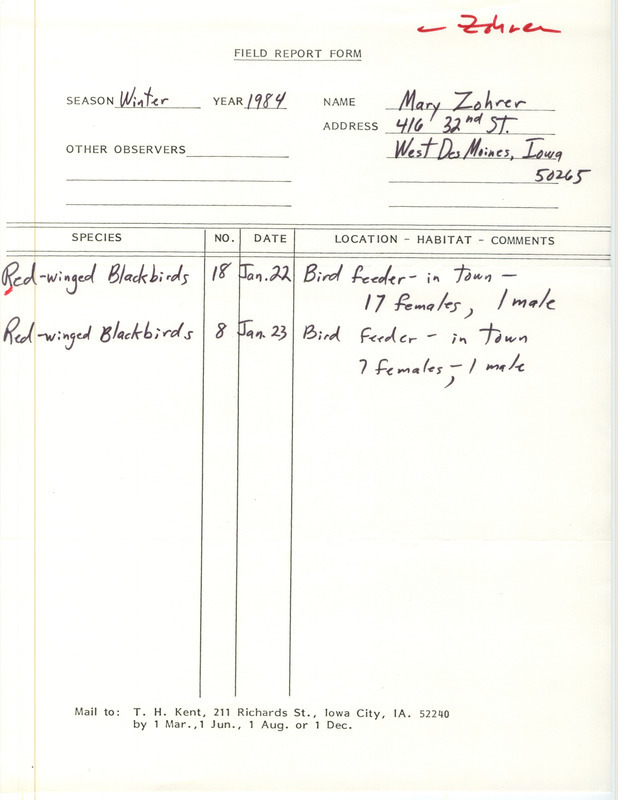 – Zohrer
FIELD REPORT FORM
SEASON Winter YEAR 1984 NAME Mary Zohrer
ADDRESS 416 32nd ST.
OTHER OBSERVERS West Des Moines, Iowa
50265
SPECIES NO. DATE LOCATION - HABITAT - COMMENTS
Red-winged Blackbirds 18 Jan. 22 Bird feeder - in Town -
17 females, 1 male
Red-winged Blackbirds 8 Jan. 23 Bird feeder - in Town
7 females - 1 male
Mail to: T. H. Kent, 211 Richards St., Iowa City, IA. 52240
by 1 Mar., 1 Jun., 1 Aug. or 1 Dec.